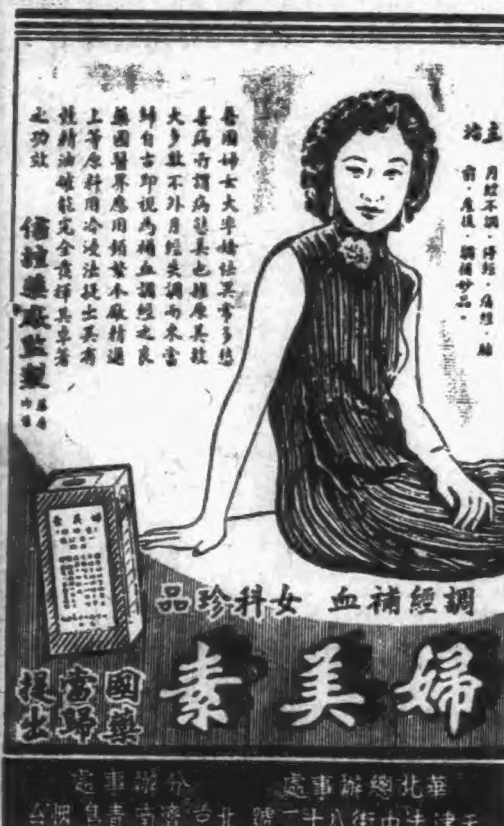 主治
月經不調・停經・痛經・胎
前・產後・調補妙品。
吾國婦女大率嬌怯異常多愁
善病所謂病態美也推原其故
大多數不外月經失調而來當
歸自古即說為補血調經之良
藥國醫界應用頻繁本廠精選
上等原料用冷浸法提出其有
精油確能完全發揮其卓著
之功效
信誼藥廠監製
婦美素
調經補血 女科珍品
婦美素
國藥
當歸
提出
華北總辦事處
天津法中街八十一號
分辦事處
濟南青島烟台